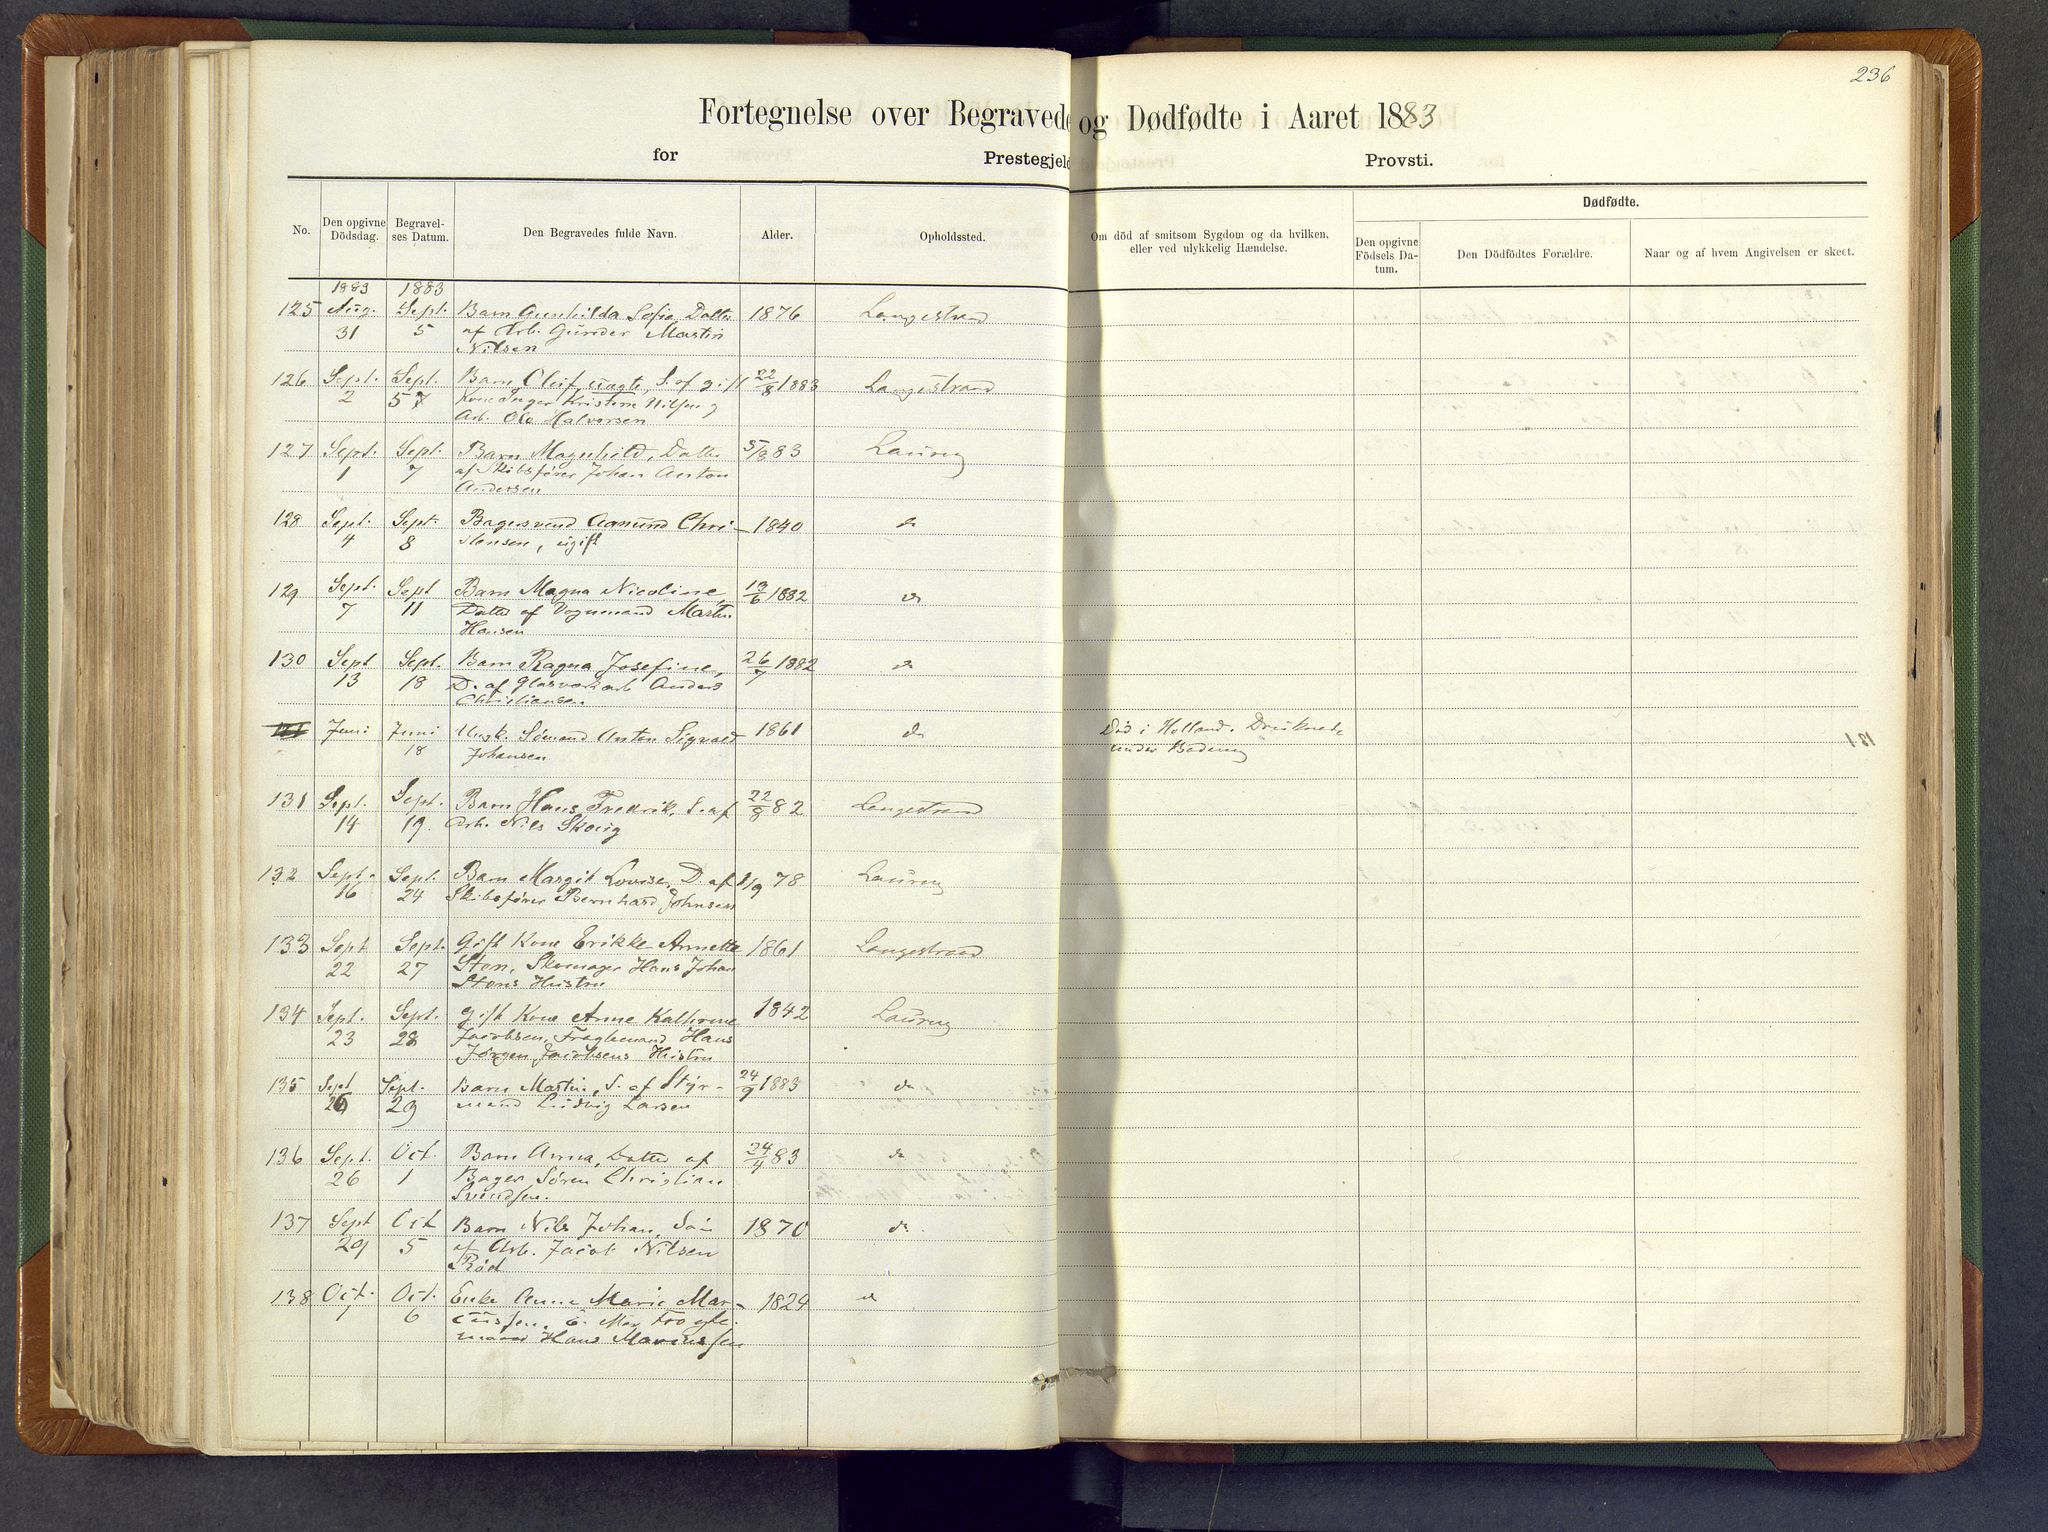 236
Fortegnelse over Begravede og Dødfødte i Aaret 1883
for Prestegjeld Provsti.
No. Den opgivne Dödsdag. Begravelses Datum. Den Begravedes fulde Navn. Alder. Opholdssted. Om död af smitsom Sygdom og da hvilken, eller ved ulykkelig Hændelse. Dødfødte.
Den opgivne Födsels Datum. Den Dödfödtes Forældre. Naar og af hvem Angivelsen er skeet.
1883 1883
125 Aug. Sept. Barn Gunhilda Sofia, Datter 1876 Langestrand
31 5 af Arb. Gunder Martin
Nilsen
126 Sept. Sept. Barn Oluf, uægte, S. af g: 22/8 1883 Langestrand
2 5 7 Kone Inger Kristine Nilsen og
Arb. Ole Halvorsen
127 Sept. Sept. Barn Magnhild, Datter 5/8 83 Laurvig
1 7 af Skibsfører Johan Anton
Andersen
128 Sept. Sept. Bagersvend Aanund Chri- 1840 do
4 8 stensen, ugift
129 Sept. Sept Barn Magna Nicoline, 13/6 1882 do
7 11 Datter af Vognmand Martin
Hansen
130 Sept Sept. Barn Ragna Josefine, 26/7 1882 do
13 18 D. af Glasværkarb Anders
Christiansen.
131 Juni Juni Ungk. Sömand Anton Sigvald 1861 do Död i Holland. Druknede 131
18 Johansen under Badning
131 Sept. Sept. Barn Hans Fredrik, S. af 22/8 82 Langestrand
14 19. Arb. Nils Skoug
132 Sept. Sept. Barn Margit Lovise, D. af 1/9 78 Laurvig
16 24 Skibsfører Bernhard Johnsen
133 Sept Sept. Gift Kone Erikke Annette 1861 Langestrand
22 27 Sten, Skomager Hans Johan
Stens Hustru
134 Sept. Sept. gift Kone Anne Kathrine 1842 Laurvig
23 28 Jacobsen, Fragtemand Hans
Jørgen Jacobsens Hustru
135 Sept Sept. Barn Martin, S. af Styr- 24/9 1883 do
26 29 mand Ludvig Larsen
136 Sept. Oct. Barn Anna, Datter af 24/4 83 do
26 1 Bager Søren Christian
Svendsen.
137 Sept Oct Barn Nils Johan, Søn 1870 do
29 5 af Arb. Jacob Nilsen
Rød
138 Oct. Oct. Enke Anne Marie Mar- 1824 do
1 6 cussen, E.
Hans Marcussen